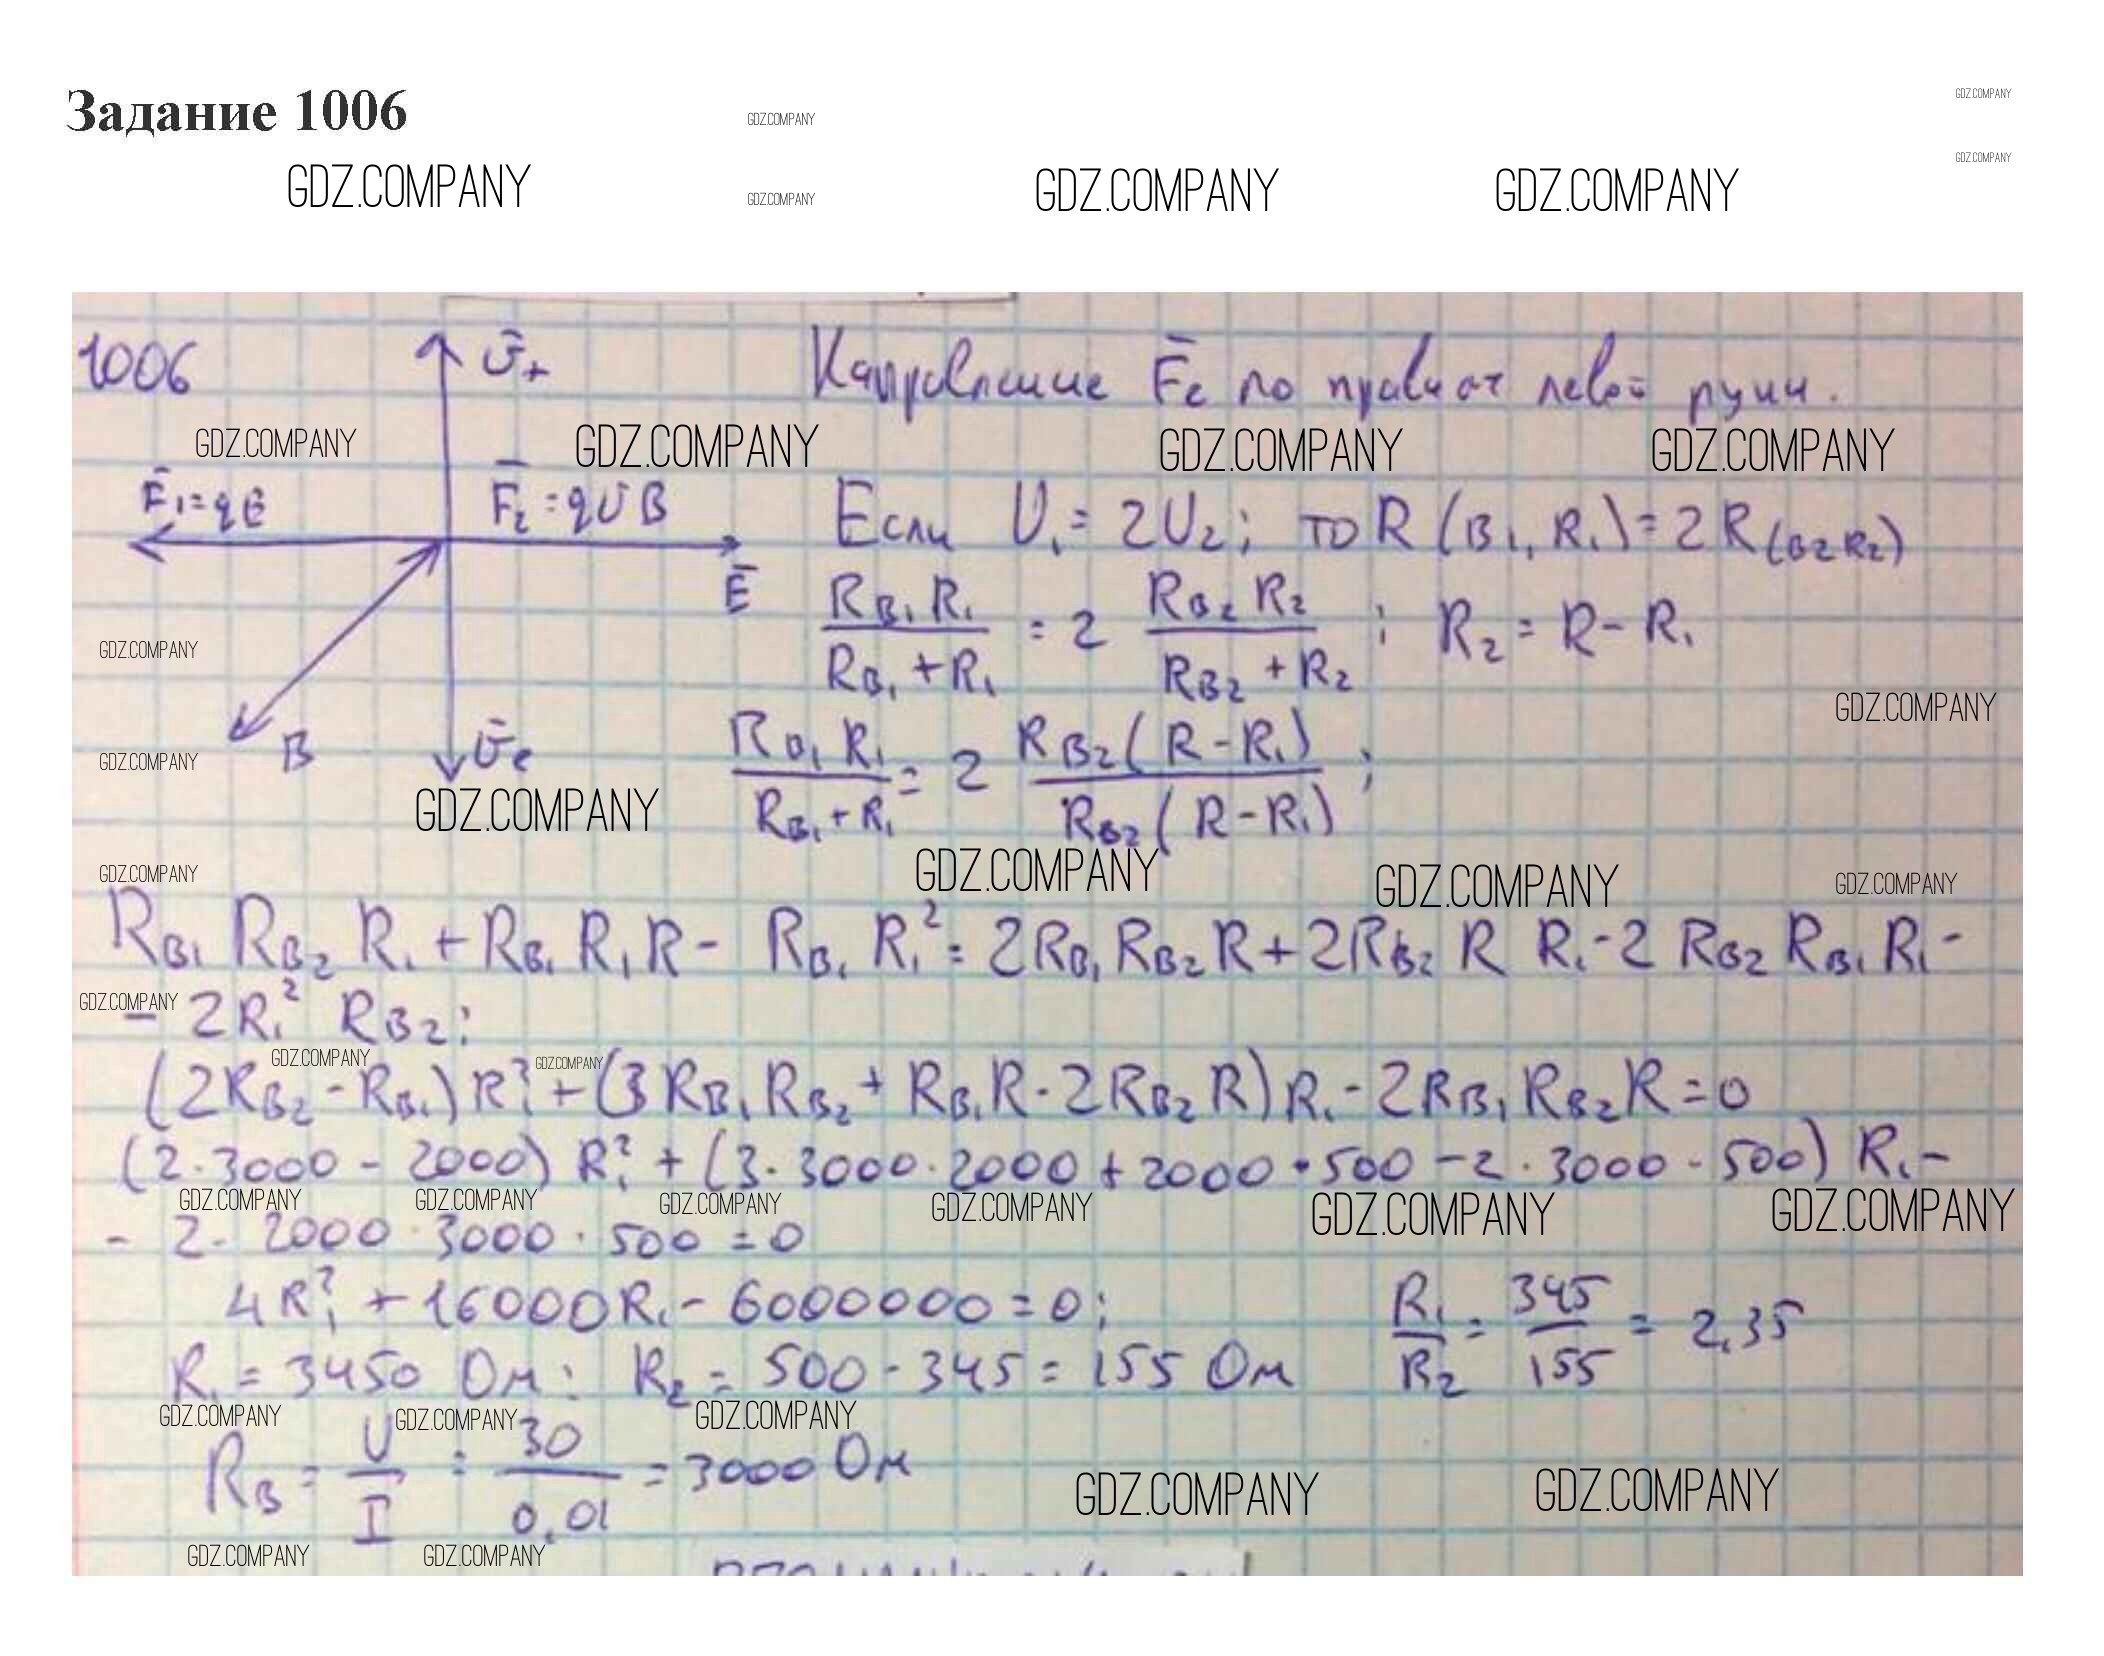 Задание 1006
GDZ.COMPANY
GDZ.COMPANY
GDZ.COMPANY
GDZ.COMPANY
GDZ.COMPANY GDZ.COMPANY GDZ.COMPANY
GDZ.COMPANY
1006 v̄₊ Направление F̄e по правил левой руки.
GDZ.COMPANY GDZ.COMPANY GDZ.COMPANY GDZ.COMPANY
F̄₁=qE F̄₂=qυB Если U₁=2U₂; то R(B₁,R₁)=2R(B2R2)
Ē RB₁R₁/(RB₁+R₁) = 2 RB₂R₂/(RB₂+R₂); R₂=R-R₁
GDZ.COMPANY
GDZ.COMPANY
B v̄e RB₁R₁/(RB₁+R₁) = 2 RB₂(R-R₁)/RB₂(R-R₁);
GDZ.COMPANY
GDZ.COMPANY
GDZ.COMPANY GDZ.COMPANY GDZ.COMPANY GDZ.COMPANY
RB₁RB₂R₁+RB₁R₁R-RB₁R₁²=2RB₁RB₂R+2RB₂RR₁-2RB₂RB₁R₁-
GDZ.COMPANY
-2R₁²RB₂;
GDZ.COMPANY GDZ.COMPANY
(2RB₂-RB₁)R₁²+(3RB₁RB₂+RB₁R-2RB₂R)R₁-2RB₁RB₂R=0
(2·3000-2000)R₁²+(3·3000·2000+2000·500-2·3000·500)R₁-
GDZ.COMPANY GDZ.COMPANY GDZ.COMPANY GDZ.COMPANY GDZ.COMPANY GDZ.COMPANY
-2·2000·3000·500=0
4R₁²+16000R₁-6000000=0; R₁/R₂=345/155=2,35
R₁=3450 Ом; R₂=500-345=155 Ом
GDZ.COMPANY GDZ.COMPANY GDZ.COMPANY
RB=U/I=30/0,01=3000 Ом
GDZ.COMPANY GDZ.COMPANY
GDZ.COMPANY GDZ.COMPANY